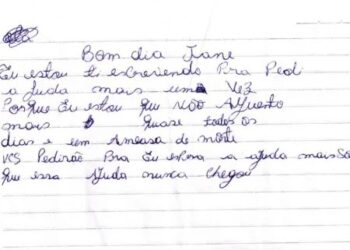 Bom dia Jane
Eu estou ti escrevendo Pra Pedi
a Juda mais uma Vez
Porque Eu estou que Não Aguento
mais quase todos os
dias e um Ameasa de morte
vcs Pedirão Pra Eu espera a ajuda mais Só
que essa Ajuda nunca chegou